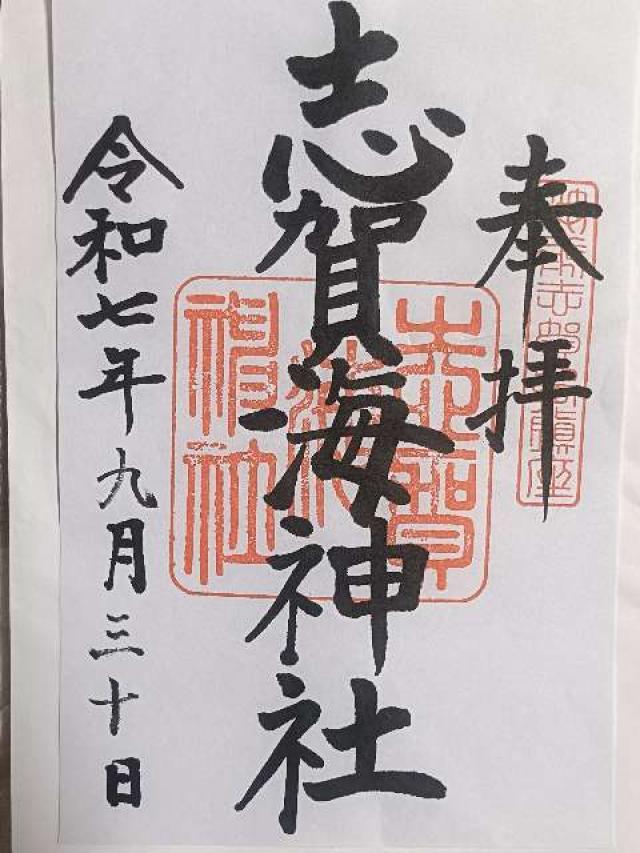 奉拝
志賀海神社
志賀海神社
令和七年九月三十日